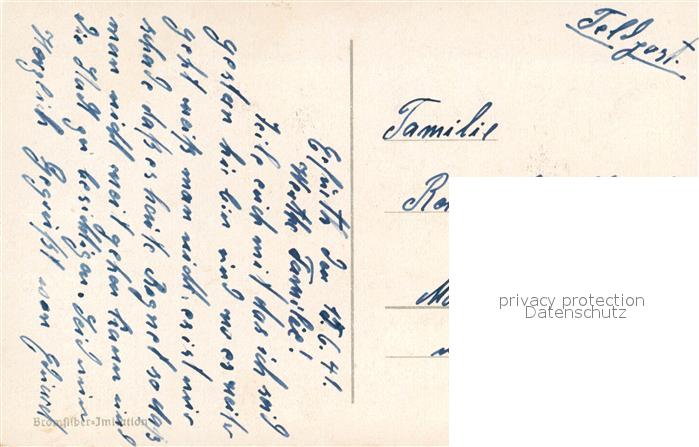 Feldpost.
Familie
privacy protection
Datenschutz
den 15.6.41.
Werthe Familie!
Teile euch mit das ich seid
gestern hir bin und wo es weiter
geht weiß man nicht, es ist nur
schade daß es heute Regnet so daß
man nicht weit gehen kann und
die Stadt zu besichtigen. Seid nun
Herzlich Gegrüßt von
Bromsilber-Imitation